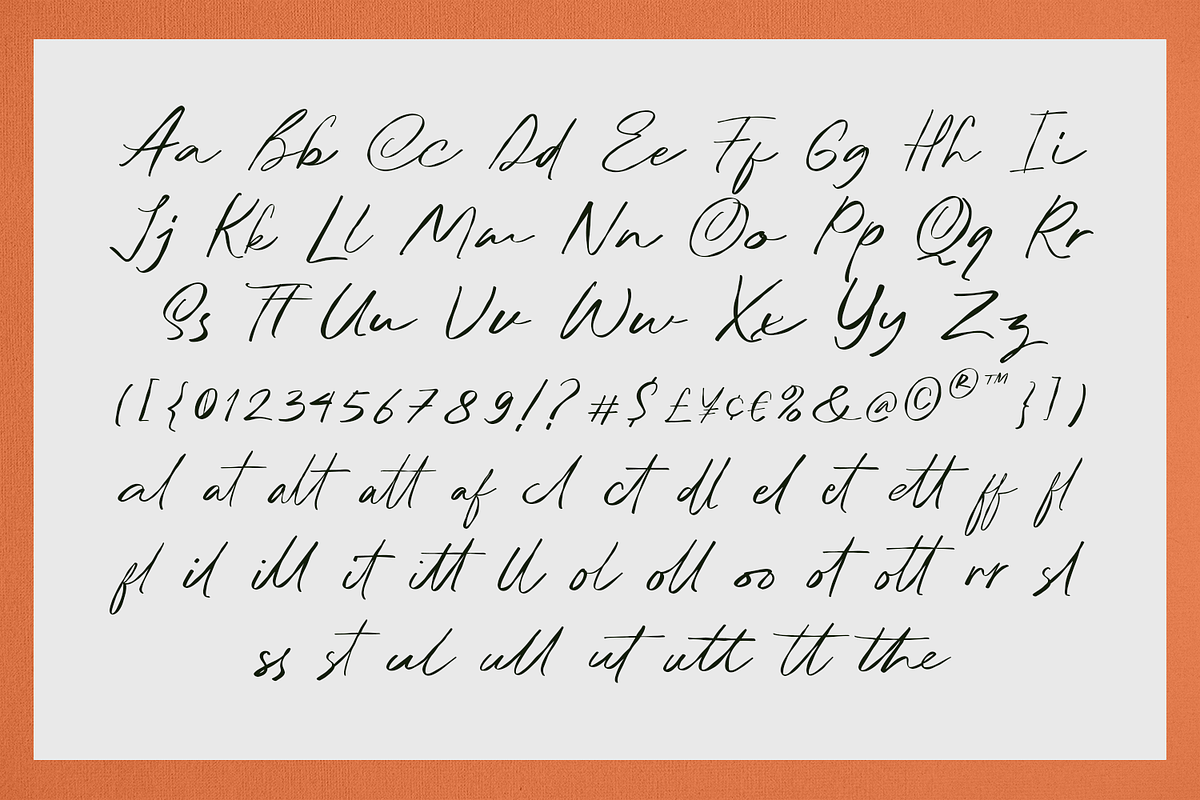 Aa Bb Cc Dd Ee Ff Gg Hh Ii
Jj Kk Ll Mm Nn Oo Pp Qq Rr
Ss Tt Uu Vv Ww Xx Yy Zz
([{0123456789!?#$£¥¢€%&@©®™}])
al at alt att af cl ct dl el et ett ff fl
fl il ill it itt ll ol oll oo ot ott rr sl
ss st ul ull ut utt tt the